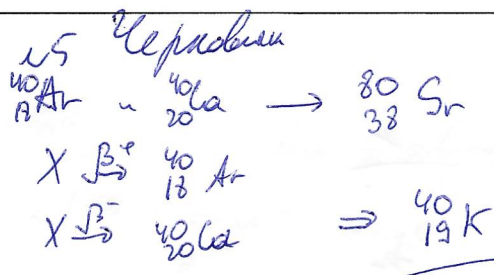 №5 Черновик
⁴⁰₁₈Ar и ⁴⁰₂₀Ca → ⁸⁰₃₈Sr
X β⁺→ ⁴⁰₁₈Ar
X β⁻→ ⁴⁰₂₀Ca ⇒ ⁴⁰₁₉K